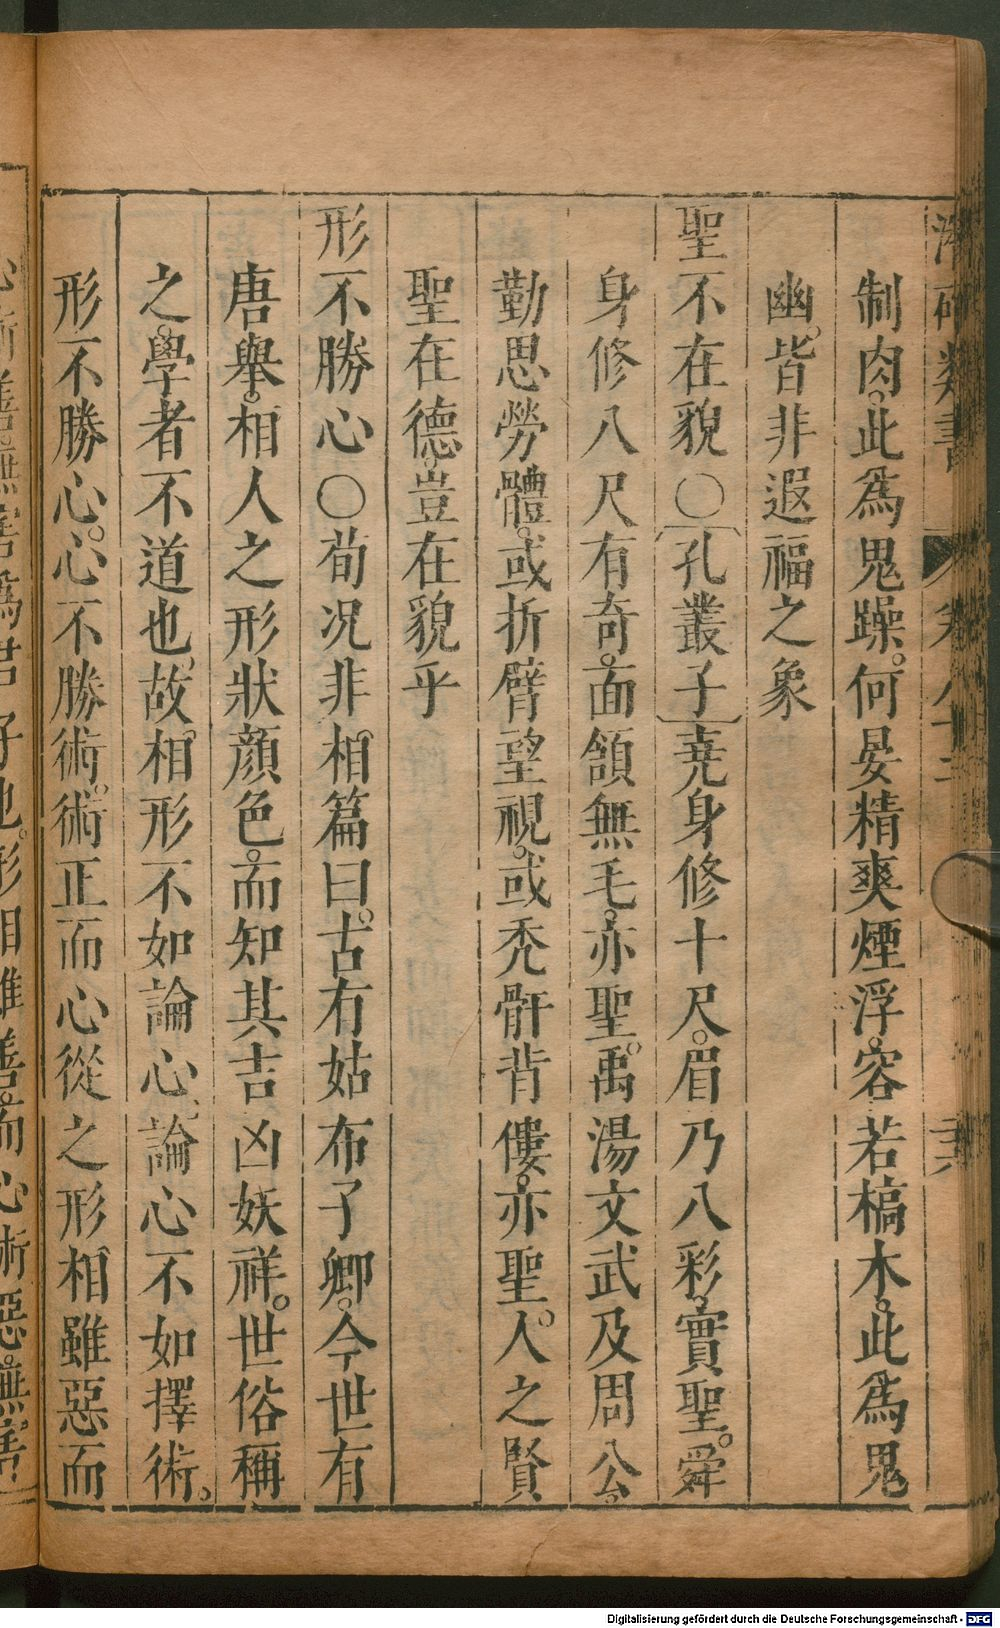 類書
制肉此爲鬼躁何晏精爽煙浮容若槁木此爲鬼
幽皆非遐福之象
聖不在貌〇〔孔叢子〕堯身修十尺眉乃八彩實聖舜
身修八尺有奇面頷無毛亦聖禹湯文武及周公
勤思勞體或折臂望視或禿骭背僂亦聖人之賢
聖在德豈在貌乎
形不勝心〇荀况非相篇曰古有姑布子卿今世有
唐舉相人之形狀顔色而知其吉凶妖祥世俗稱
之學者不道也故相形不如論心論心不如擇術
形不勝心心不勝術術正而心從之形相雖惡而
心術善無害爲君子也形相雖善而心術惡無害
Digitalisierung gefördert durch die Deutsche Forschungsgemeinschaft - DFG